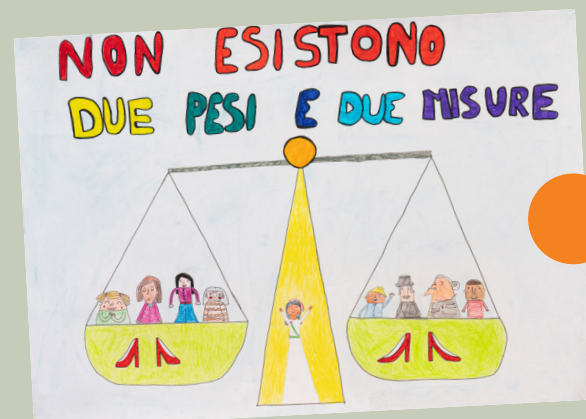 NON ESISTONO
DUE PESI E DUE MISURE